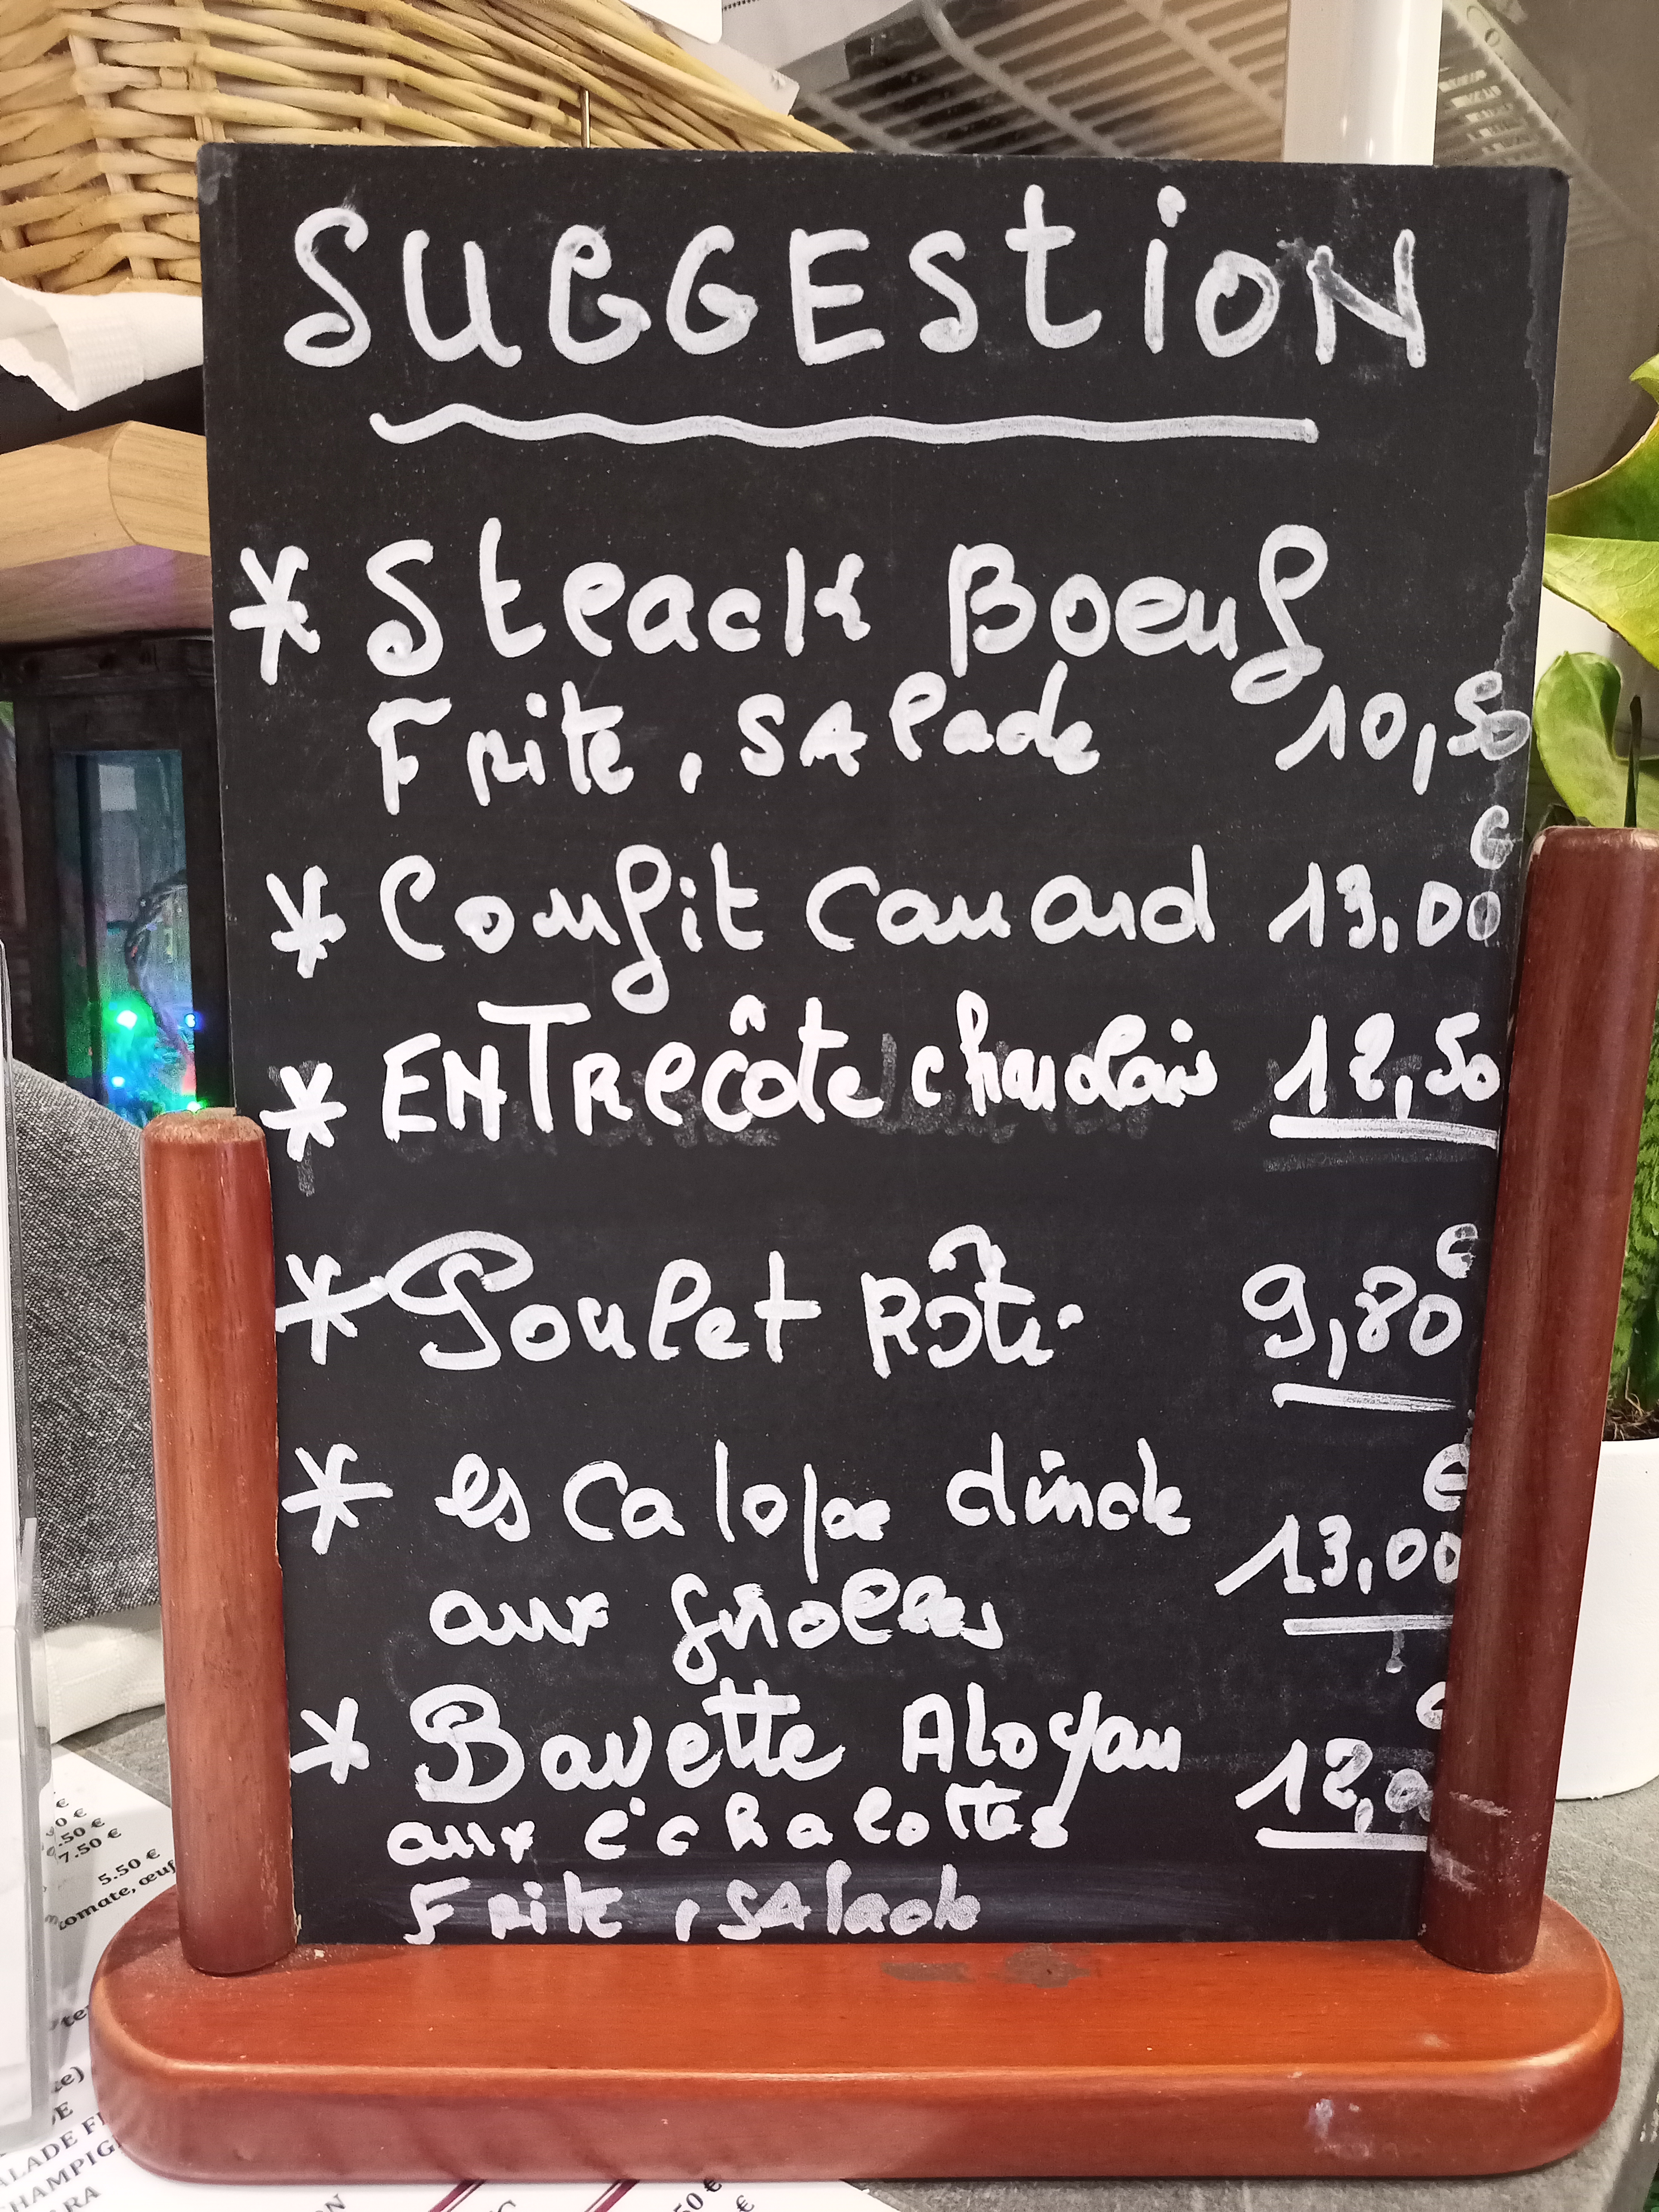 SUGGEStiON
* Steack Boeuf
Frite, SAlade 10,50 €
* Confit Canard 13,00 €
* ENTRecôte charolais 12,50
* Poulet Rôti 9,80 €
* escalope dinde
aux girolles 13,00 €
* Bavette Aloyau 12,0 €
aux échalottes
Frite, SAlade
0 €
.50 €
7.50 €
5.50 €
tomate, œuf
ALADE
CHAMPIG
ARA
50 €
€